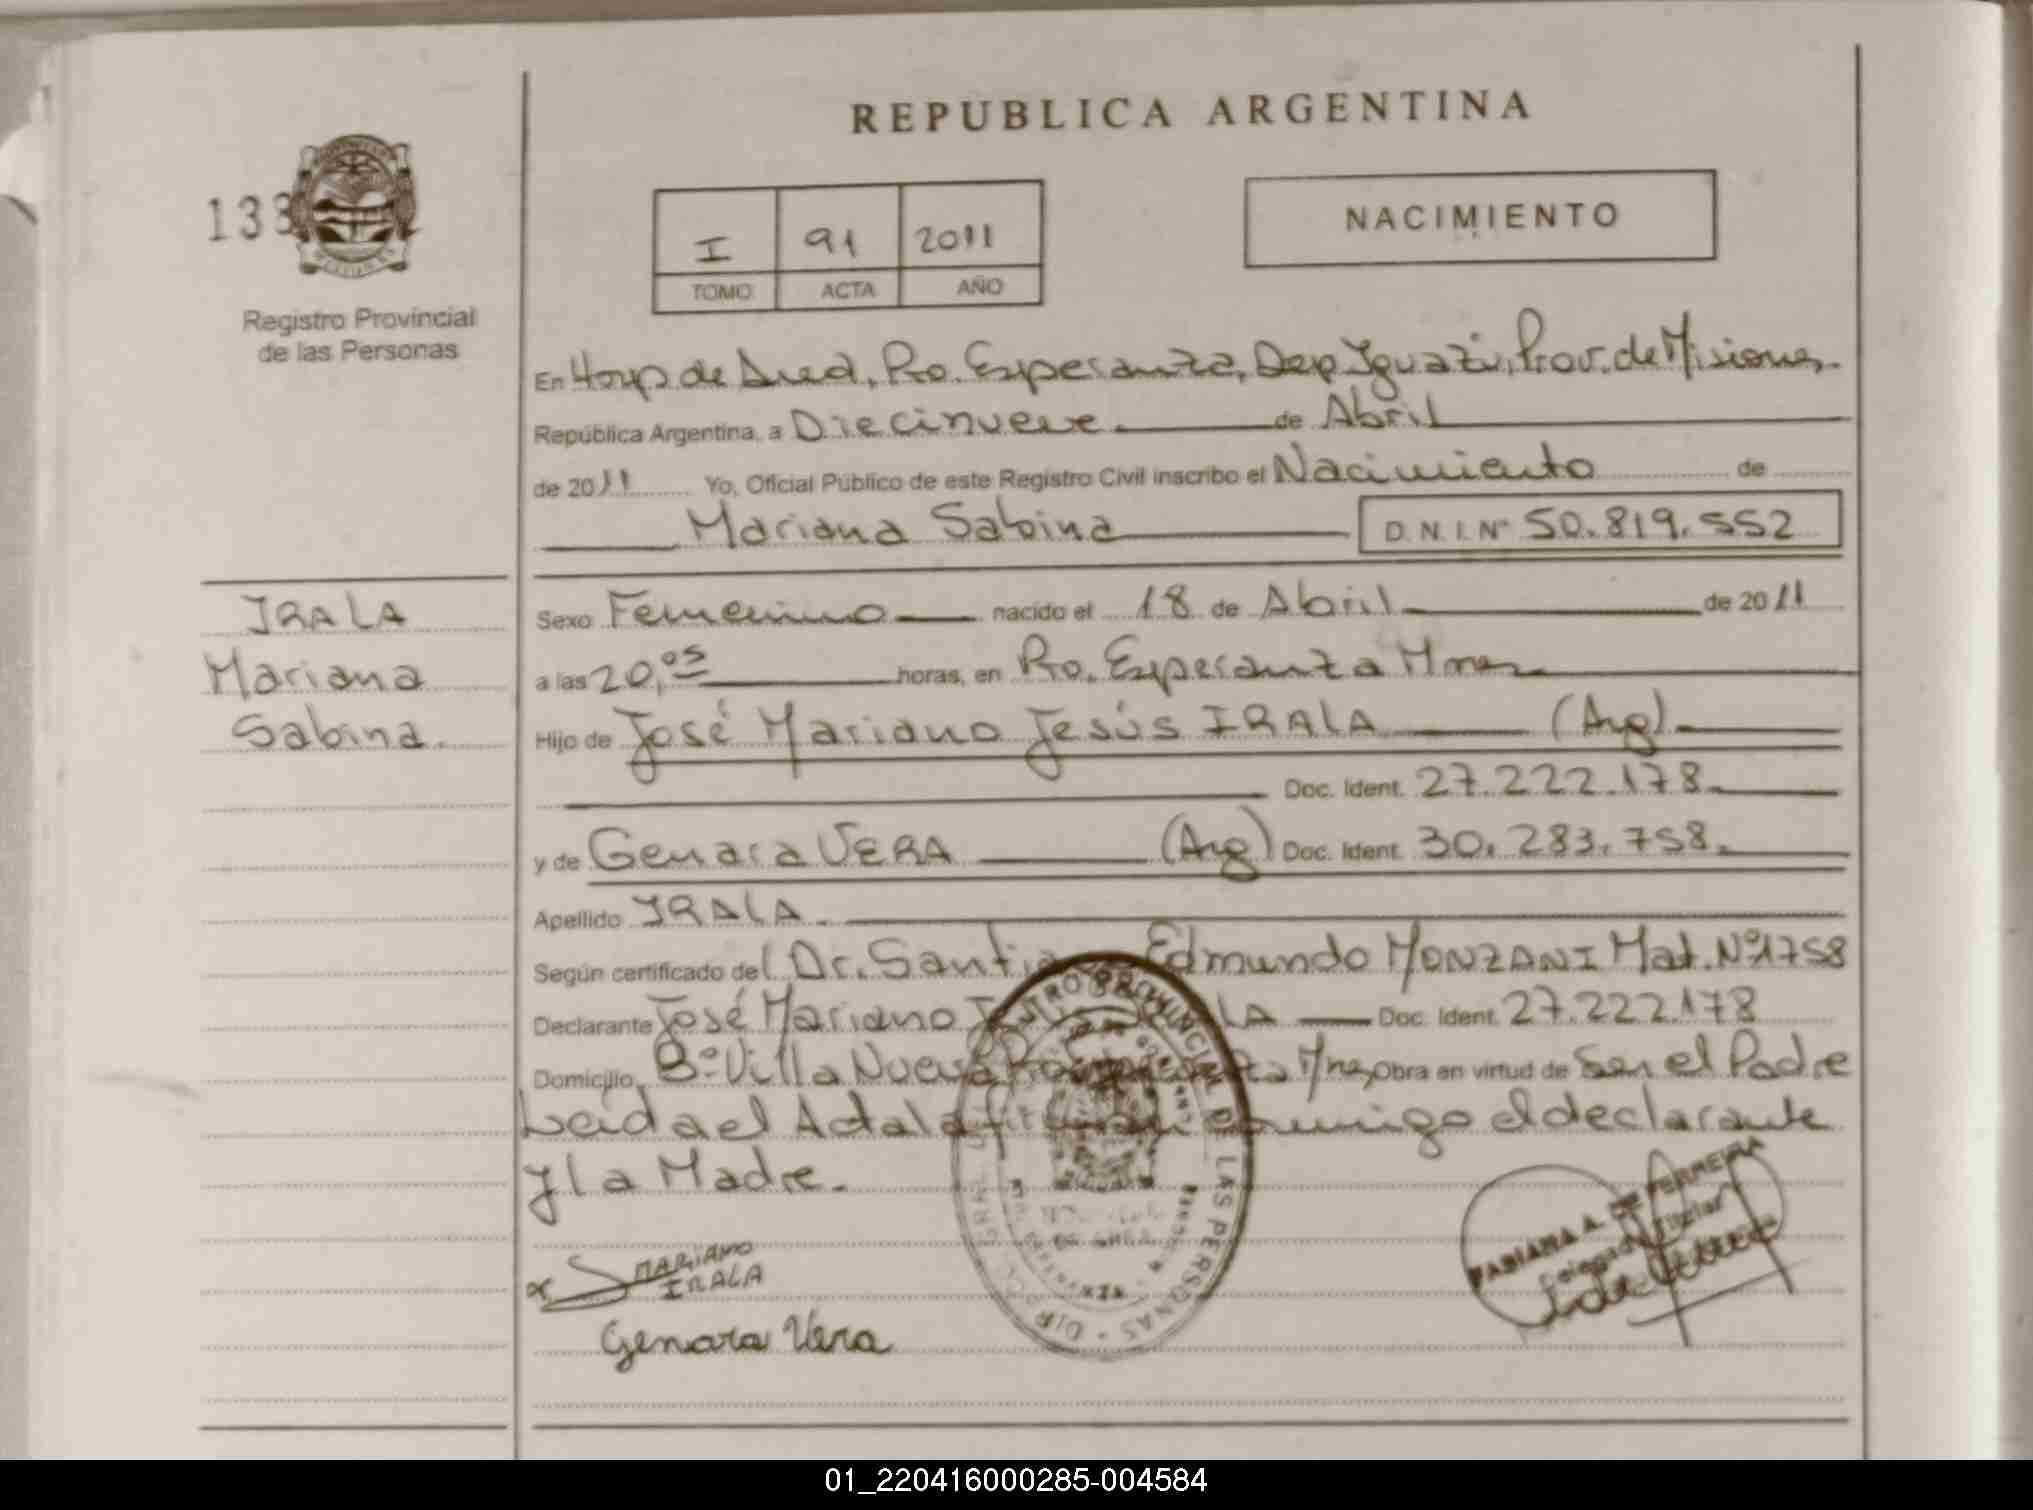 REPUBLICA ARGENTINA
133
Registro Provincial
de las Personas
I 91 2011
TOMO ACTA AÑO
NACIMIENTO
En Hosp de Area, Pto. Esperanza, Dep Iguazú, Prov. de Misiones.
República Argentina, a Diecinueve de Abril
de 2011 Yo, Oficial Público de este Registro Civil inscribo el Nacimiento de
Mariana Sabina D.N.I. Nº 50.819.552
IRALA
Mariana
Sabina.
Sexo Femenino nacido el 18 de Abril de 2011
a las 20,05 horas, en Pto. Esperanza Mnes
Hijo de José Mariano Jesús IRALA (Arg)
Doc. Ident. 27.222.178
y de Genara VERA (Arg) Doc. Ident. 30.283.758.
Apellido IRALA.
Según certificado del Dr. Edmundo MONZANI Mat. Nº1758
Declarante José Mariano Doc. Ident. 27.222.178
Domicilio Bº Villa Nueva Mnes Obra en virtud de Ser el Padre
Leida el Acta la el declarante
y la Madre.
MARIANO
IRALA
Genara Vera
LAS PERSONAS
FABIANA A. DE FERREYRA
Delegada Titular
01_220416000285-004584